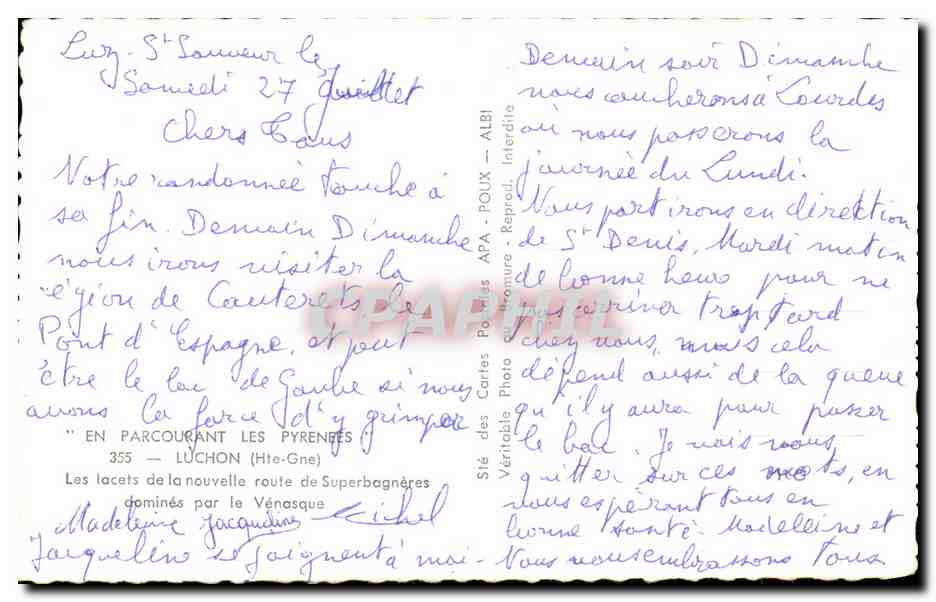 Luz-St Sauveur le
Samedi 27 Juillet
Chers Tous
Notre randonnée touche à
sa fin. Demain Dimanche
nous irons visiter la
région de Cauterets, le
Pont d'Espagne, et peut
être le lac de Gaube si nous
avons la force d'y grimper
" EN PARCOURANT LES PYRENEES "
355 — LUCHON (Hte-Gne)
Les lacets de la nouvelle route de Superbagnères
dominés par le Vénasque
Madeleine Jacqueline Michel
Sté des Cartes Postales APA - POUX — ALBI
Véritable Photo au Bromure - Reprod. Interdite
Demain soir Dimanche
nous coucherons à Lourdes
où nous passerons la
journée du Lundi.
Nous partirons en direction
de St Denis, Mardi matin
de bonne heure pour ne
pas arriver trop tard
chez nous, mais cela
dépend aussi de la queue
qu'il y aura pour passer
le bac. Je vais vous
quitter sur ces mots, en
vous espérant tous en
bonne santé. Madeleine et
Jacqueline se joignent à moi -
Nous vous embrassons Tous
CPAPHIL